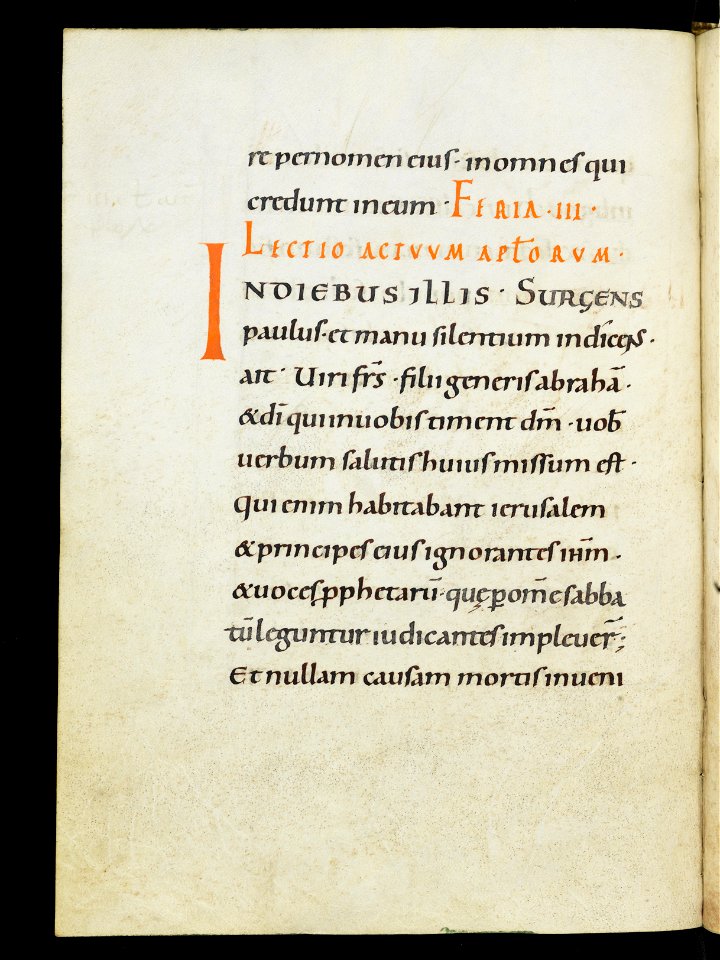 re per nomen eius · in omnes qui
credunt in eum · FERIA · III ·
LECTIO ACTUUM APL̄ORUM ·
IN DIEBUS ILLIS · SURGENS
paulus · et manu silentium indicens ·
ait · Uiri fr̄s · filii generis abrahā ·
& dī qui in uobis timent dm̄ · uob̄
uerbum salutis huius missum est ·
Qui enim habitabant ierusalem
& principes eius ignorantes ihm̄ ·
& uoces ꝓphetarū · quę ꝑ om̄e sabba
tū leguntur iudicantes impleuer̄ ;
Et nullam causam mortis inueni